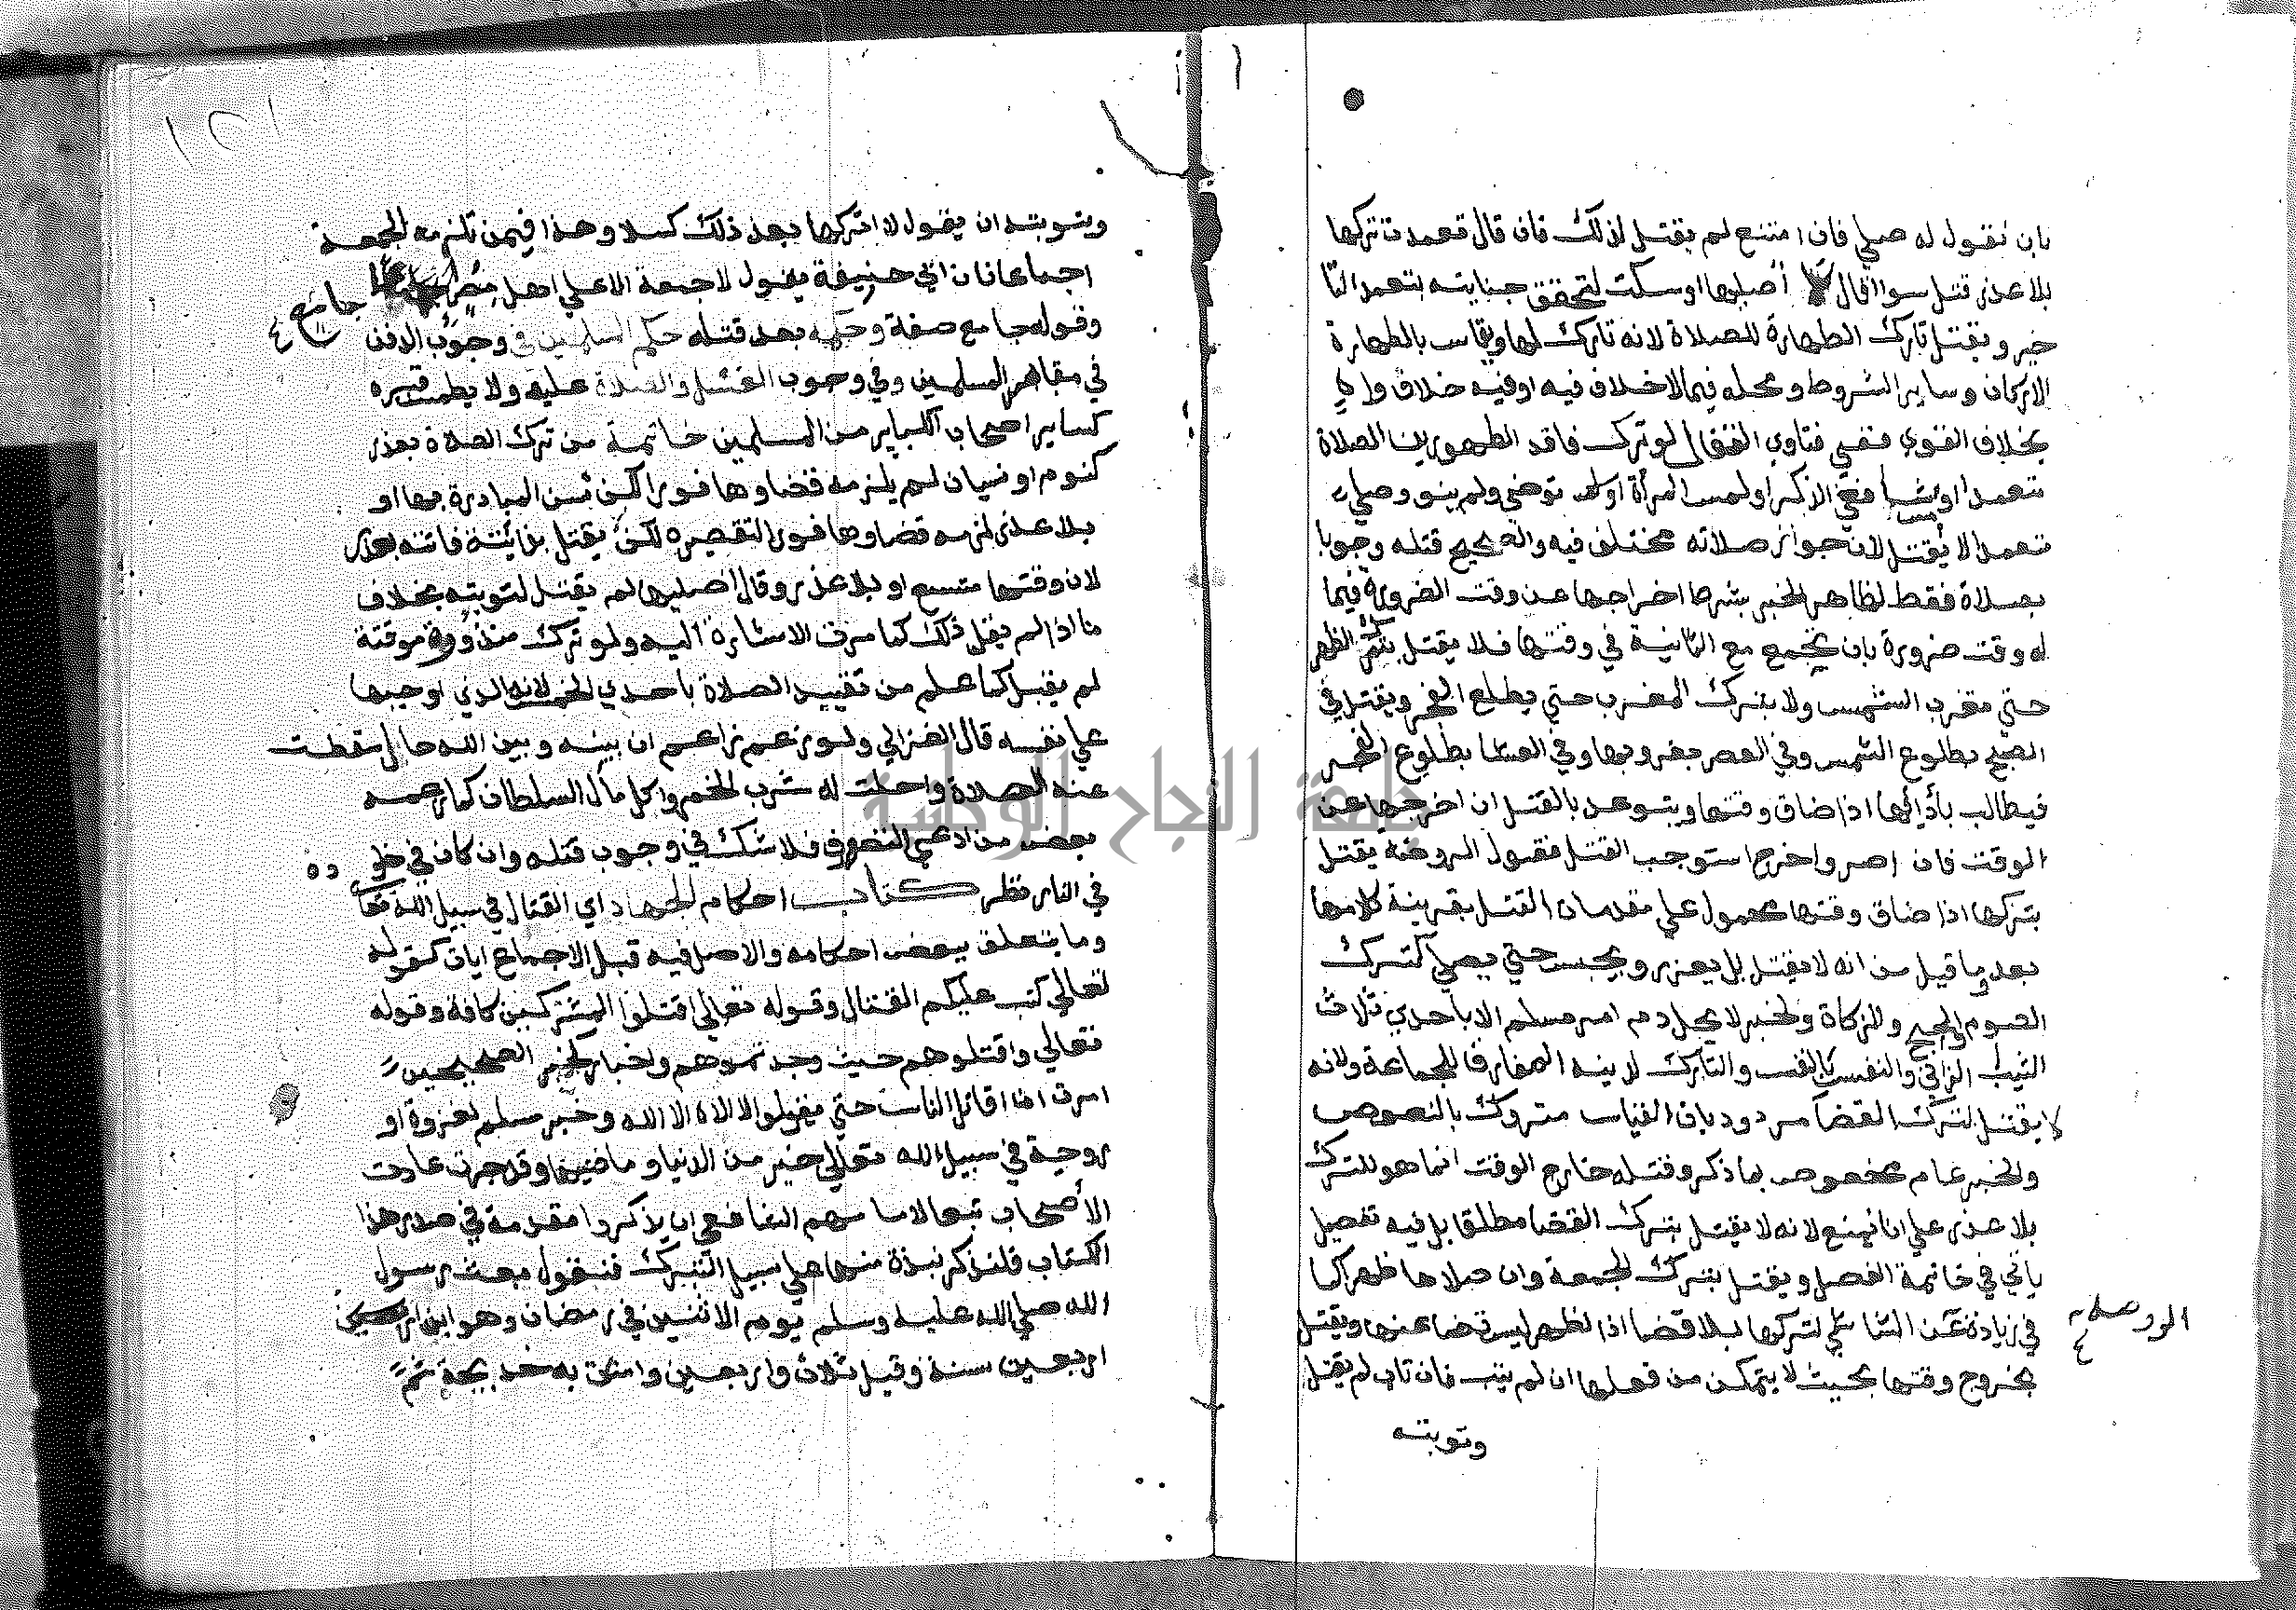 بان نقول له صلي فان امتنع لم يقتل لذلك فان قال تعمدت تركها
بلا عذر قتل سوا اقال لا اصليها او سكت لتحقق جنايته بتعمد التا
خير و يقتل تارك الطهارة للصلاة لانه تارك لها ويقاس بالطهارة
الاركان وساير الشروط ومحله فيما لا خلاف فيه او فيه خلاف واهٍ
بخلاف القوي ففي فتاوي القفال لو ترك فاقد الطهورين الصلاة
متعمدا او شافعي الذكر او لمس المرأة او توضي ولم ينو وصلي
تعمدا لا يقتل لان جواز صلاته مختلف فيه والصحيح قتله وجوبا
بصلاة فقط لظاهر الخبر بشرط اخراجها عن وقت الضرورة فيما
له وقت ضرورة بان تجمع مع الثانية في وقتها فلا يقتل بترك الظهر
حتي تغرب الشمس ولا بترك المغرب حتي يطلع الفجر ويقتل في
الصبح بطلوع الشمس وفي العصر بغروبها وفي العشا بطلوع الفجر
فيطالب بأدائها اذا ضاق وقتها ويتوعد بالقتل ان اخرجها عن
الوقت فان اصر واخرج استوجب القتل فقول الروضة يقتل
بتركها اذا ضاق وقتها محمول علي مقدمات القتل بقرينة كلامها
بعد وما قيل من انه لا يقتل بل يعزر ويحبس حتي يصلي كترك
الصوم والحج والزكاة ولخبر لا يحل دم امر مسلم الا باحدي ثلاث
الثيب الزاني والنفس بالنفس والتارك لدينه المفارق للجماعة ولانه
لا يقتل لترك القضا مردود بان القياس متروك بالنصوص
والخبر عام مخصوص بما ذكر وقتله خارج الوقت انما هو للترك
بلا عذر علي انا نمنع لانه لا يقتل بترك القضا مطلقا بل فيه تفصيل
ياتي في خاتمة الفصل ويقتل بترك الجمعة وان صلاها ظهرا كما
في زيادة عن الشاشي لتركها بلا قضا اذا لظهر ليس قضا عنها ويقتل
بخروج وقتها بحيث لا يتمكن من فعلها ان لم يتب فان تاب لم يقتل
وتوبته
وتوبته ان يقول لا اتركها بعد ذلك كسلا وهذا فيمن تلزمه الجمعة
اجماعا فان ابي حنيفة يقول لا جمعة الا علي اهل مصر
جامع
وقوله جامع صفة وحكمه بعد قتله حكم المسلمين في وجوب الدفن
في مقابر المسلمين وفي وجوب الغسل والصلاة عليه ولا يطمس قبره
كساير اصحاب الكباير من المسلمين خاتمة من ترك الصلاة بعذر
كنوم او نسيان لم يلزمه قضاوها فورا لكن تسن المبادرة بها او
بلا عذر لزمه قضاوها فورا لتقصيره لكن لا يقتل بفايتة فاتته بعذر
لان وقتها متسع او بلا عذر وقال اصليها لم يقتل لتوبته بخلاف
ما اذا لم يقل ذلك كما مرت الاشارة اليه ولو ترك منذورة موقتة
لم يقتل كما علم من تقييد الصلاة باحدي الخمس لانه الذي اوجبها
علي نفسه قال الغزالي ولو زعم زاعم ان بينه وبين الله حالة اسقطت
عنه الصلاة واحلت له شرب الخمر واكل مال السلطان كما زعمه
بعض من ادعي التصوف فلا شك في وجوب قتله وان كان في خلوده
في النار نظر كتاب احكام الجهاد اي القتال في سبيل الله تعالي
وما يتعلق ببعض احكامه والاصل فيه قبل الاجماع ايات كقوله
تعالي كتب عليكم القتال وقوله تعالي اقتلوا المشركين كافة وقوله
تعالي واقتلوهم حيث وجدتموهم واخبار كخبر الصحيحين
امرت ان اقاتل الناس حتي يقولوا لا اله الا الله وخبر مسلم لغزوة او
روحة في سبيل الله تعالي خير من الدنيا وما فيها وقد جرت عادت
الأصحاب تبعا لامامهم الشافعي ان يذكروا مقدمة في صدر هذا
الكتاب فلنذكر نبذة منها علي سبيل التبرك فنقول بعث رسول
الله صلي الله عليه وسلم يوم الاثنين في رمضان وهو ابن اربعين
اربعين سنة وقيل ثلاث واربعين وامنت به خديجة ثم